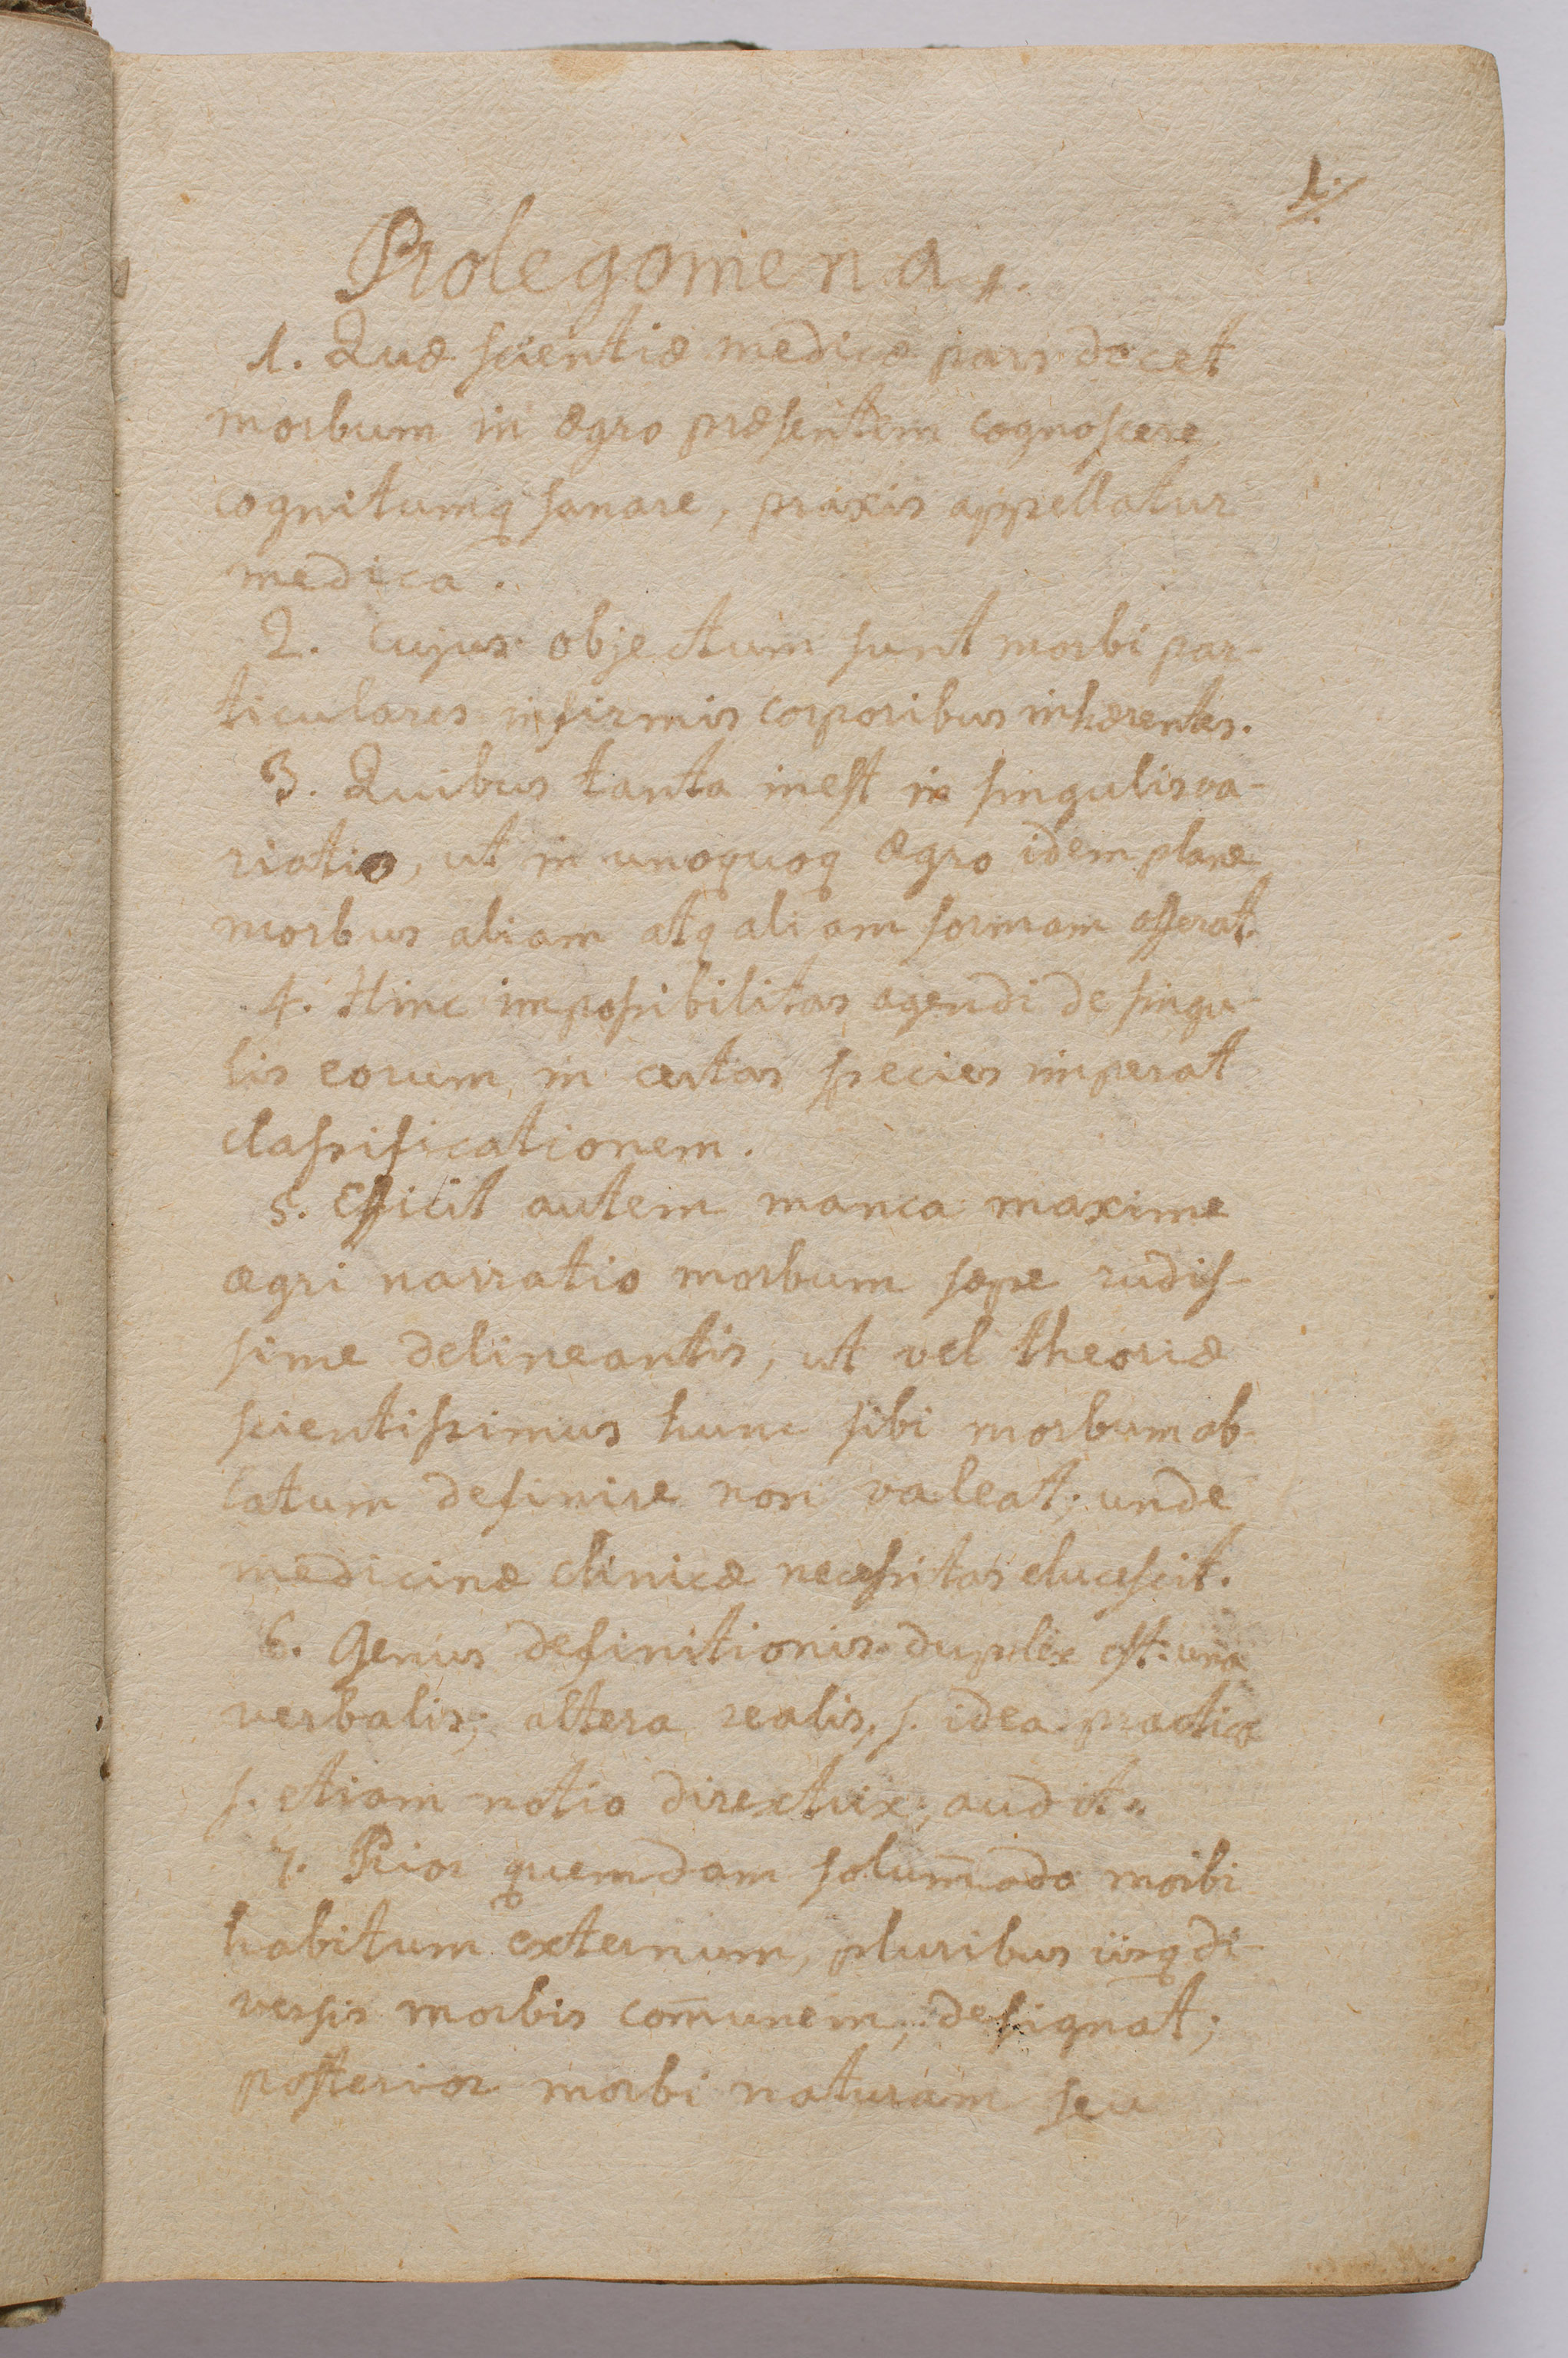 1.
Prolegomena.
1. Quæ scientiæ medicæ pars docet
morbum in ægro præsentem cognoscere
cognitumq sanare, praxis appellatur
medica.
2. Cujus objectum sunt morbi par-
ticulares infirmis corporibus inhærentes.
3. Quibus tanta inest in singulis va-
riatio, ut in unoquoq ægro idem plane
morbus aliam atq aliam formam offerat.
4. Hinc impossibilitas agendi de singu-
lis eorum in certas species imperat
classificationem.
5. Efficit autem manca maxime
ægri narratio morbum sæpe rudis-
sime delineantis, ut vel theoriæ
scientissimus hunc sibi morbum ob-
latum definire non valeat; unde
medicinæ clinicæ necessitas elucescit.
6. Genus definitionis duplex est: una
verbalis; altera realis, s. idea practica
s. etiam notio directrix, audit.
7. Prior quemdam solum̄odo morbi
habitum externum, pluribus iisq di-
versis morbis com̄unem, designat;
posterior morbi naturam seu